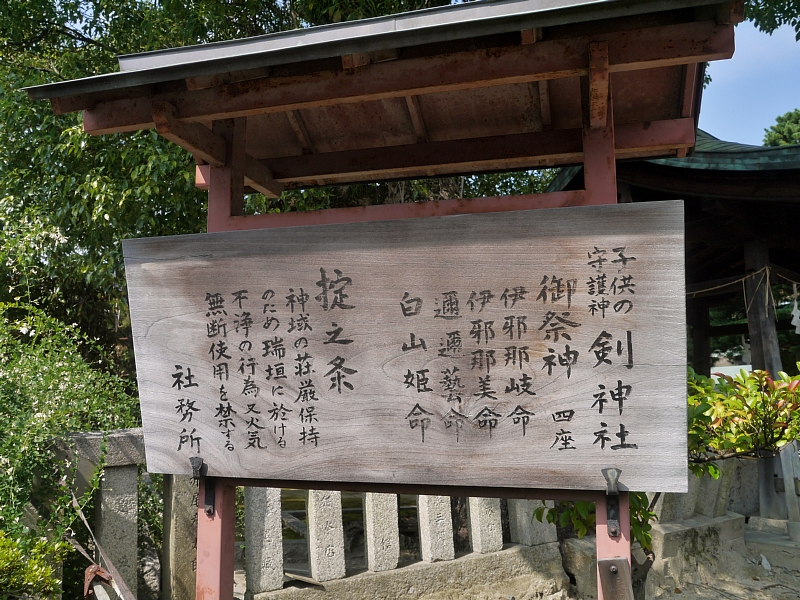 子供の
守護神
剣神社
御祭神 四座
伊邪那岐命
伊邪那美命
邇邇藝命
白山姫命
掟之条
神域の荘厳保持
のため瑞垣に於ける
不浄の行為又火気
無断使用を禁する
社務所